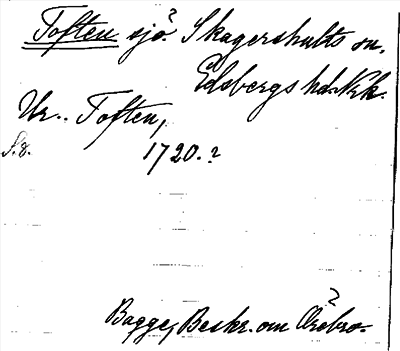 Toften sjö? Skagershults sn.
Edsbergs hd. Kk.
Ur. Toften,
S. 8. 1720.?
Bagge, Beskr. om Örebro?